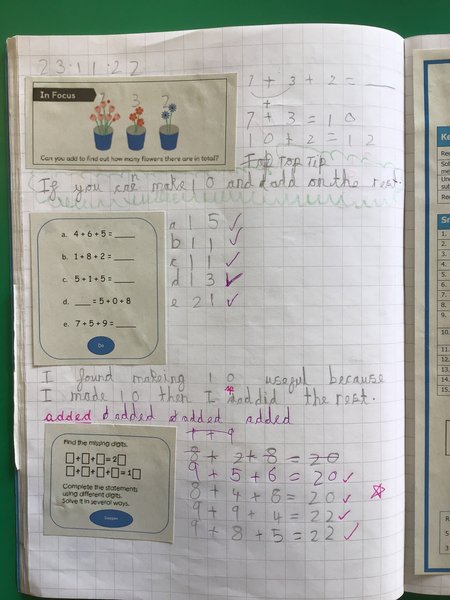 23.11.22
In Focus
7 3 2
Can you add to find out how many flowers there are in total?
7 + 3 + 2 = __
7 + 3 = 10
10 + 2 = 12
Top Tip
If you can make 10 and add on the rest.
a. 4 + 6 + 5 = ____
b. 1 + 8 + 2 = ____
c. 5 + 1 + 5 = ____
d. ____ = 5 + 0 + 8
e. 7 + 5 + 9 = ____
Do
a 15 ✓
b 11 ✓
c 11 ✓
d 13 ✓
e 21 ✓
I found makeing 10 useful because
I made 10 then I addid the rest.
added added added added
Find the missing digits.
□+□+□= 2□
□+□+□+□= 1□
Complete the statements
using different digits.
Solve it in several ways.
8 + 2 + 8 = 20
9 + 5 + 6 = 20 ✓
8 + 4 + 8 = 20 ✓
9 + 9 + 4 = 22 ✓
9 + 8 + 5 = 22 ✓